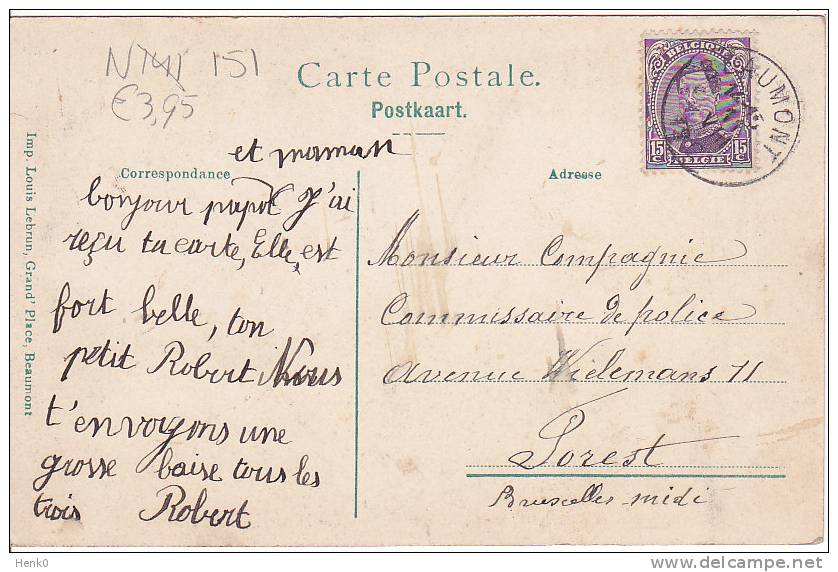 151
€3,95
Carte Postale.
Postkaart.
BELGIQUE
15c 15c
BELGIË
BEAUMONT
Correspondance
Adresse
et maman
bonjour papa J'ai
reçu ta carte, Elle, est
fort belle, ton
petit Robert Nous
t'envoyons une
grosse baise tous les
trois Robert
Monsieur Compagnie
Commissaire de police
Avenue Wielemans 11
Forest
Bruxelles midi
Imp. Louis Lebrun, Grand' Place, Beaumont
Henk0
delcampe.net